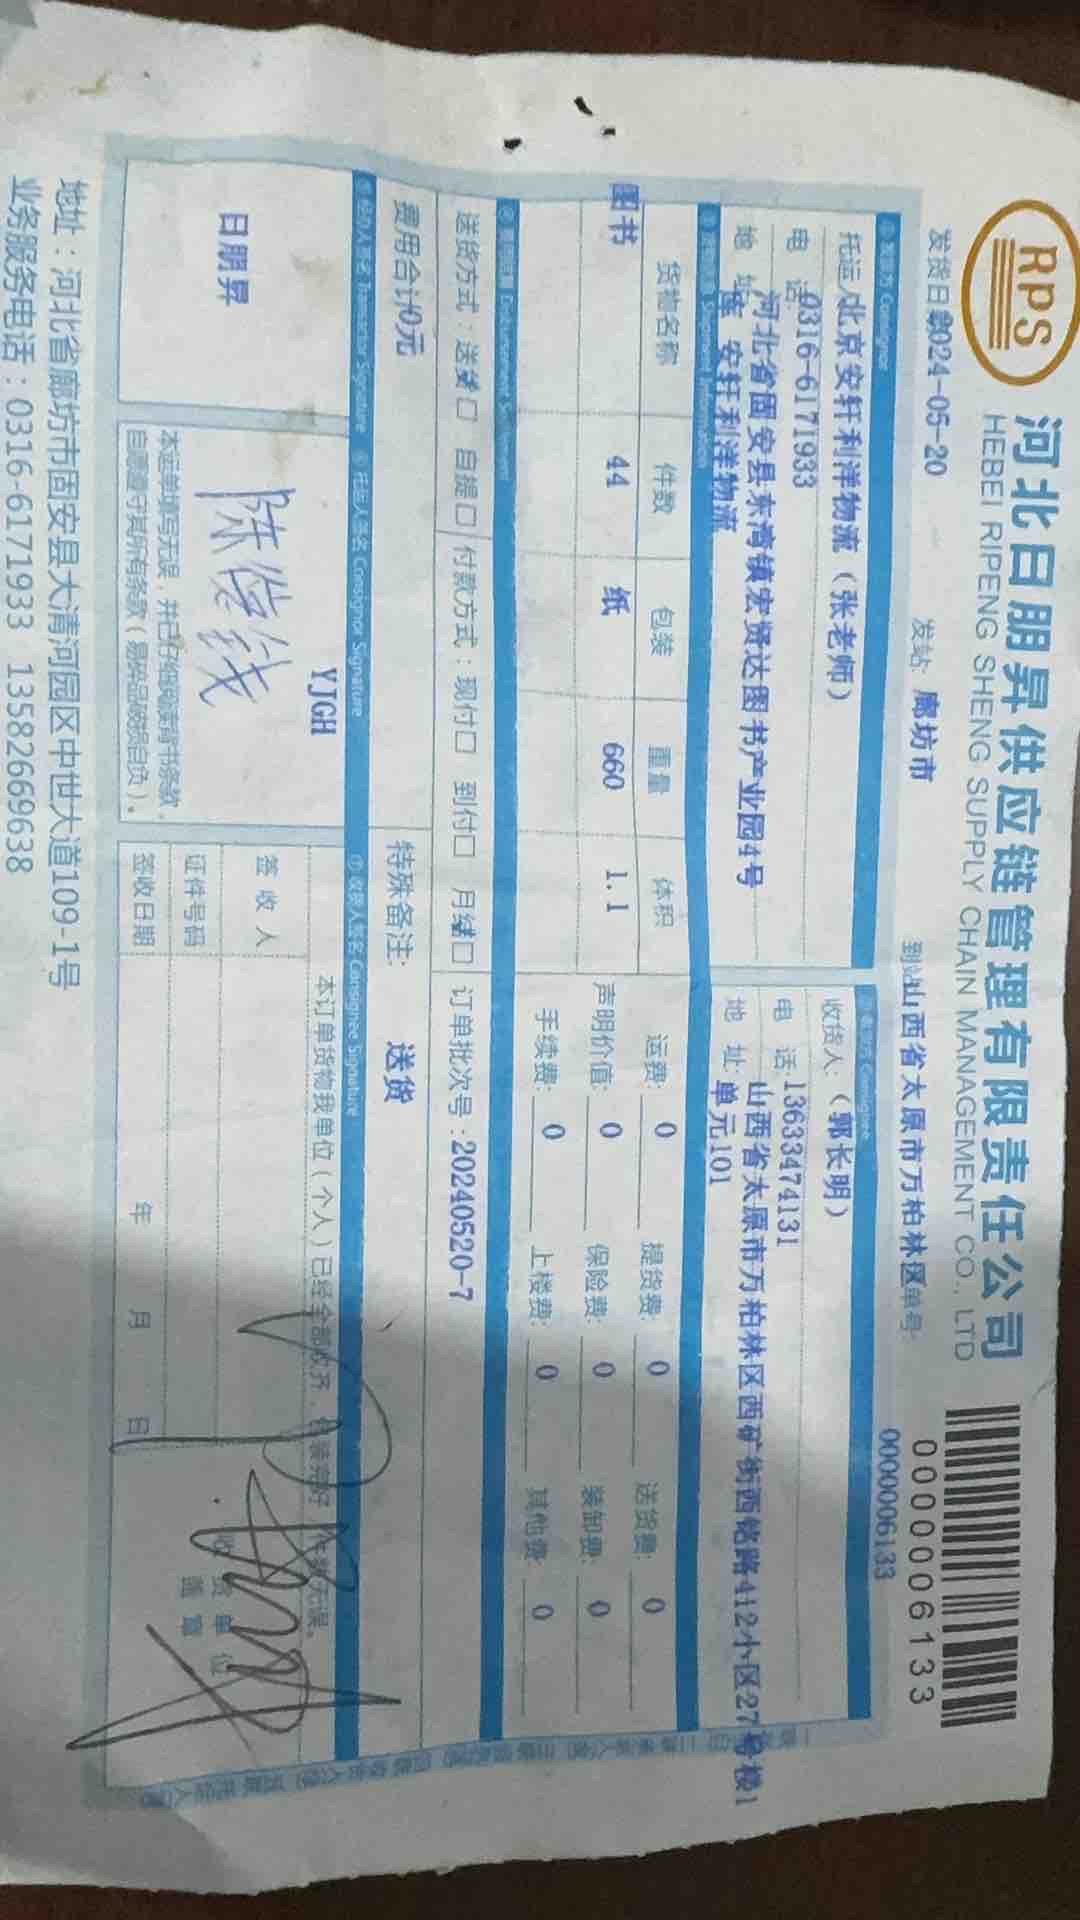 RPS
河北日朋昇供应链管理有限责任公司
HEBEI RIPENG SHENG SUPPLY CHAIN MANAGEMENT CO., LTD
0000006133
0000006133
发货日期 2024-05-20 发站: 廊坊市 到站 山西省太原市万柏林区 单号:
发货方 Consignor
托运人 北京安轩利洋物流（张老师）
电 话 0316-6171933
地 址 河北省固安县东湾镇宏贤达图书产业园4号
库 安轩利洋物流
收货方 Consignee
收货人: （郭长明）
电 话: 13633474131
地 址: 山西省太原市万柏林区西矿街西铭路412小区27号楼1
单元101
Shipment Information
货物名称 件数 包装 重量 体积
图书 44 纸 660 1.1
运费: 0 提货费: 0 送货费: 0
声明价值: 0 保险费: 0 装卸费: 0
手续费: 0 上楼费: 0 其他费: 0
送货方式：送货口 自提口 付款方式：现付口 到付口 月结口 订单批次号：20240520-7
费用合计0元
特殊备注: 送货
经办人签名 Transactor Signature
托运人签名 Consignor Signature
⑦ 收货人签名 Consignee Signature
日朋昇
YJGH
本运单填写无误，并已仔细阅读背书条款，
自愿遵守其所有条款（易碎品破损自负）。
本订单货物我单位（个人）已经全部收齐，包装完好，件数无误。
签 收 人
证件号码
签收日期 年 月 日
收货单位
盖章
地址：河北省廊坊市固安县大清河园区中世大道109-1号
业务服务电话：0316-6171933 13582669638